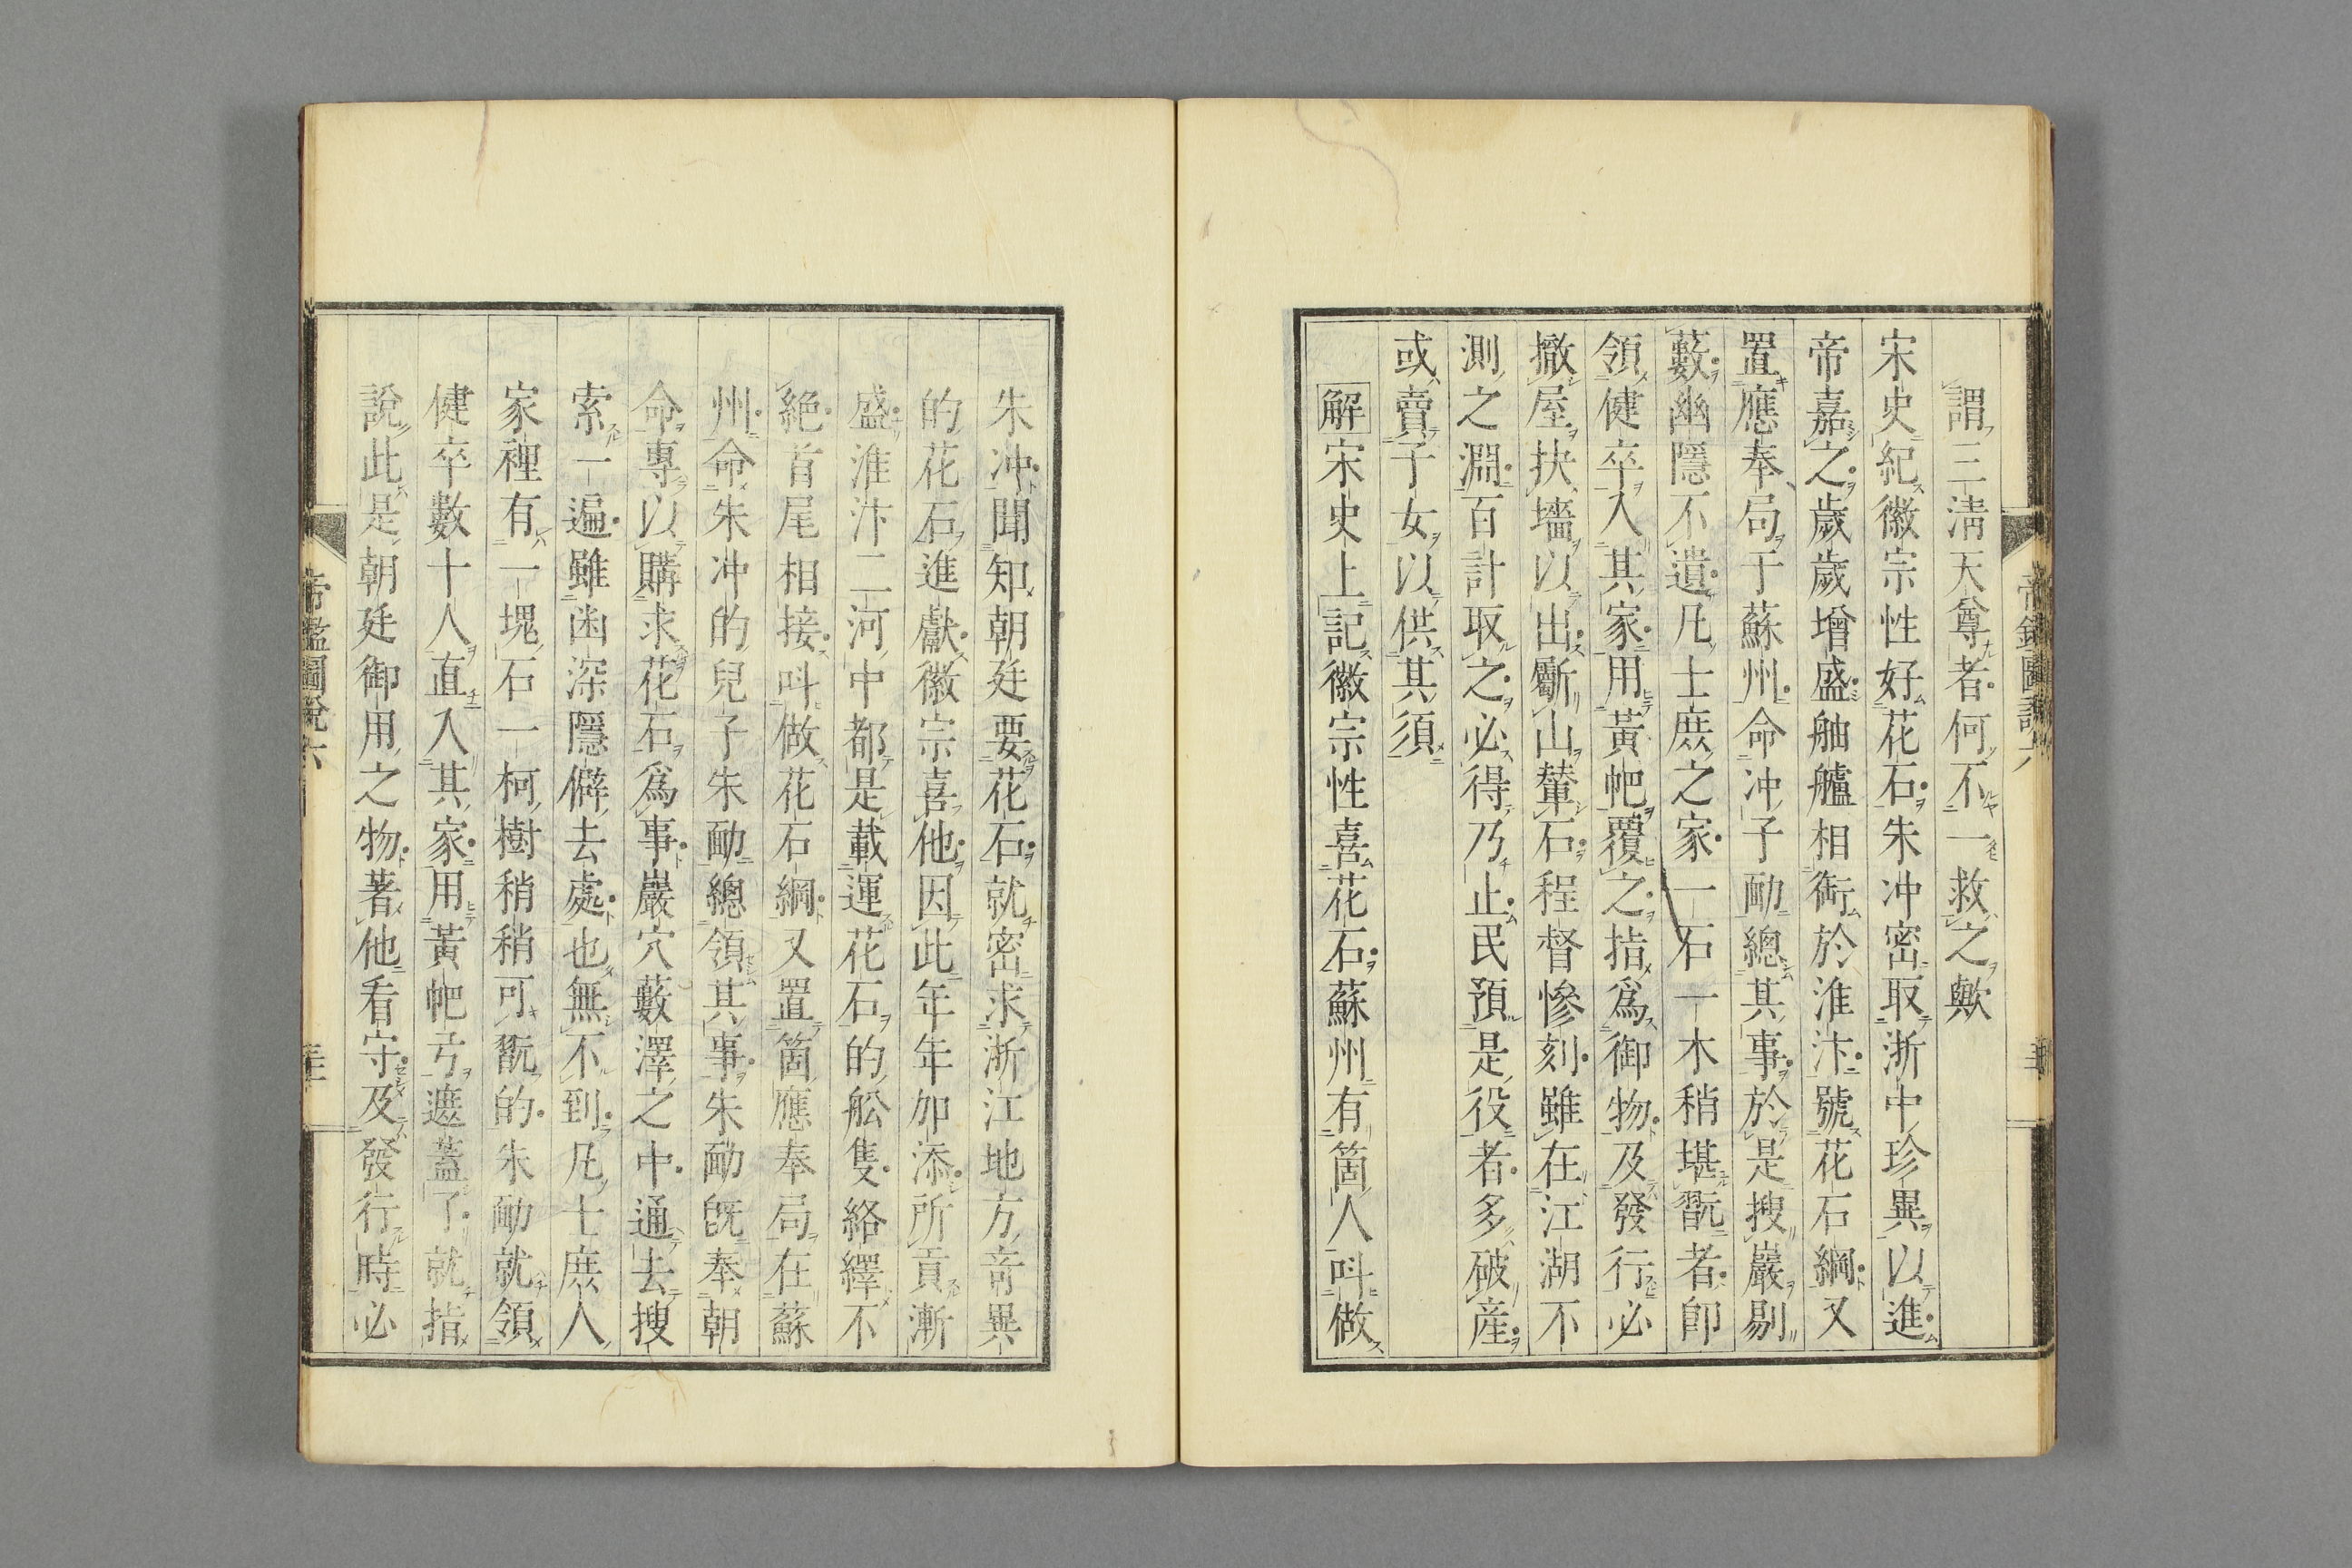 謂三淸天尊者何不一救之歟
宋史紀徽宗性好花石朱冲密取浙中珍異以進
帝嘉之歲歲增盛舳艫相銜於淮汴號花石綱又
置應奉局于蘇州命冲子勔總其事於是搜巖剔
藪幽隱不遺凡士庶之家一石一木稍堪翫者卽
領健卒入其家用黃帊覆之指爲御物及發行必
撤屋抉墻以出斸山輦石程督慘刻雖在江湖不
測之淵百計取之必得乃止民預是役者多破產
或賣子女以供其須
解宋史上記徽宗性喜花石蘇州有箇人呌做
朱冲聞知朝廷要花石就密求浙江地方奇異
的花石進獻徽宗喜他因此年年加添所貢漸
盛淮汴二河中都是載運花石的舩隻絡繹不
絕首尾相接呌做花石綱又置箇應奉局在蘇
州命朱冲的兒子朱勔總領其事朱勔旣奉朝
命專以購求花石爲事巖穴藪澤之中通去搜
索一遍雖幽深隱僻去處也無不到凡士庶人
家裡有一塊石一柯樹稍稍可翫的朱勔就領
健卒數十人直入其家用黃帊兮遮蓋了就指
說此是朝廷御用之物著他看守及發行時必
帝鑑圖說六